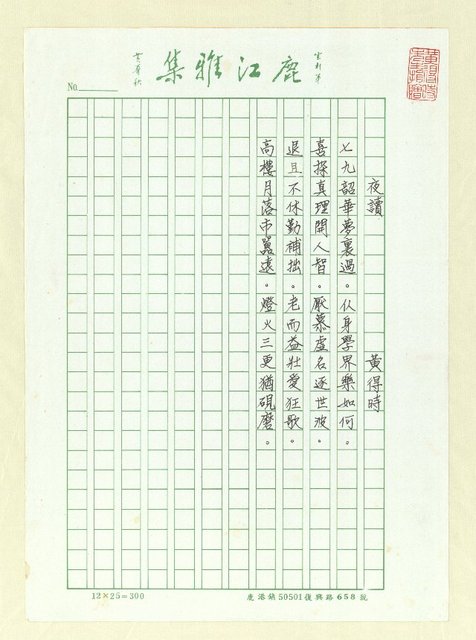 鹿江雅集
No.
夜讀　黃得時
七九韶華夢裏過。仄身學界樂如何。
喜探真理開人智。厭慕虛名逐世波。
退且不休勤補拙。老而益壯愛狂歌。
高樓月落市囂遠。燈火三更猶硯磨。
12×25=300
鹿港鎮50501復興路658號